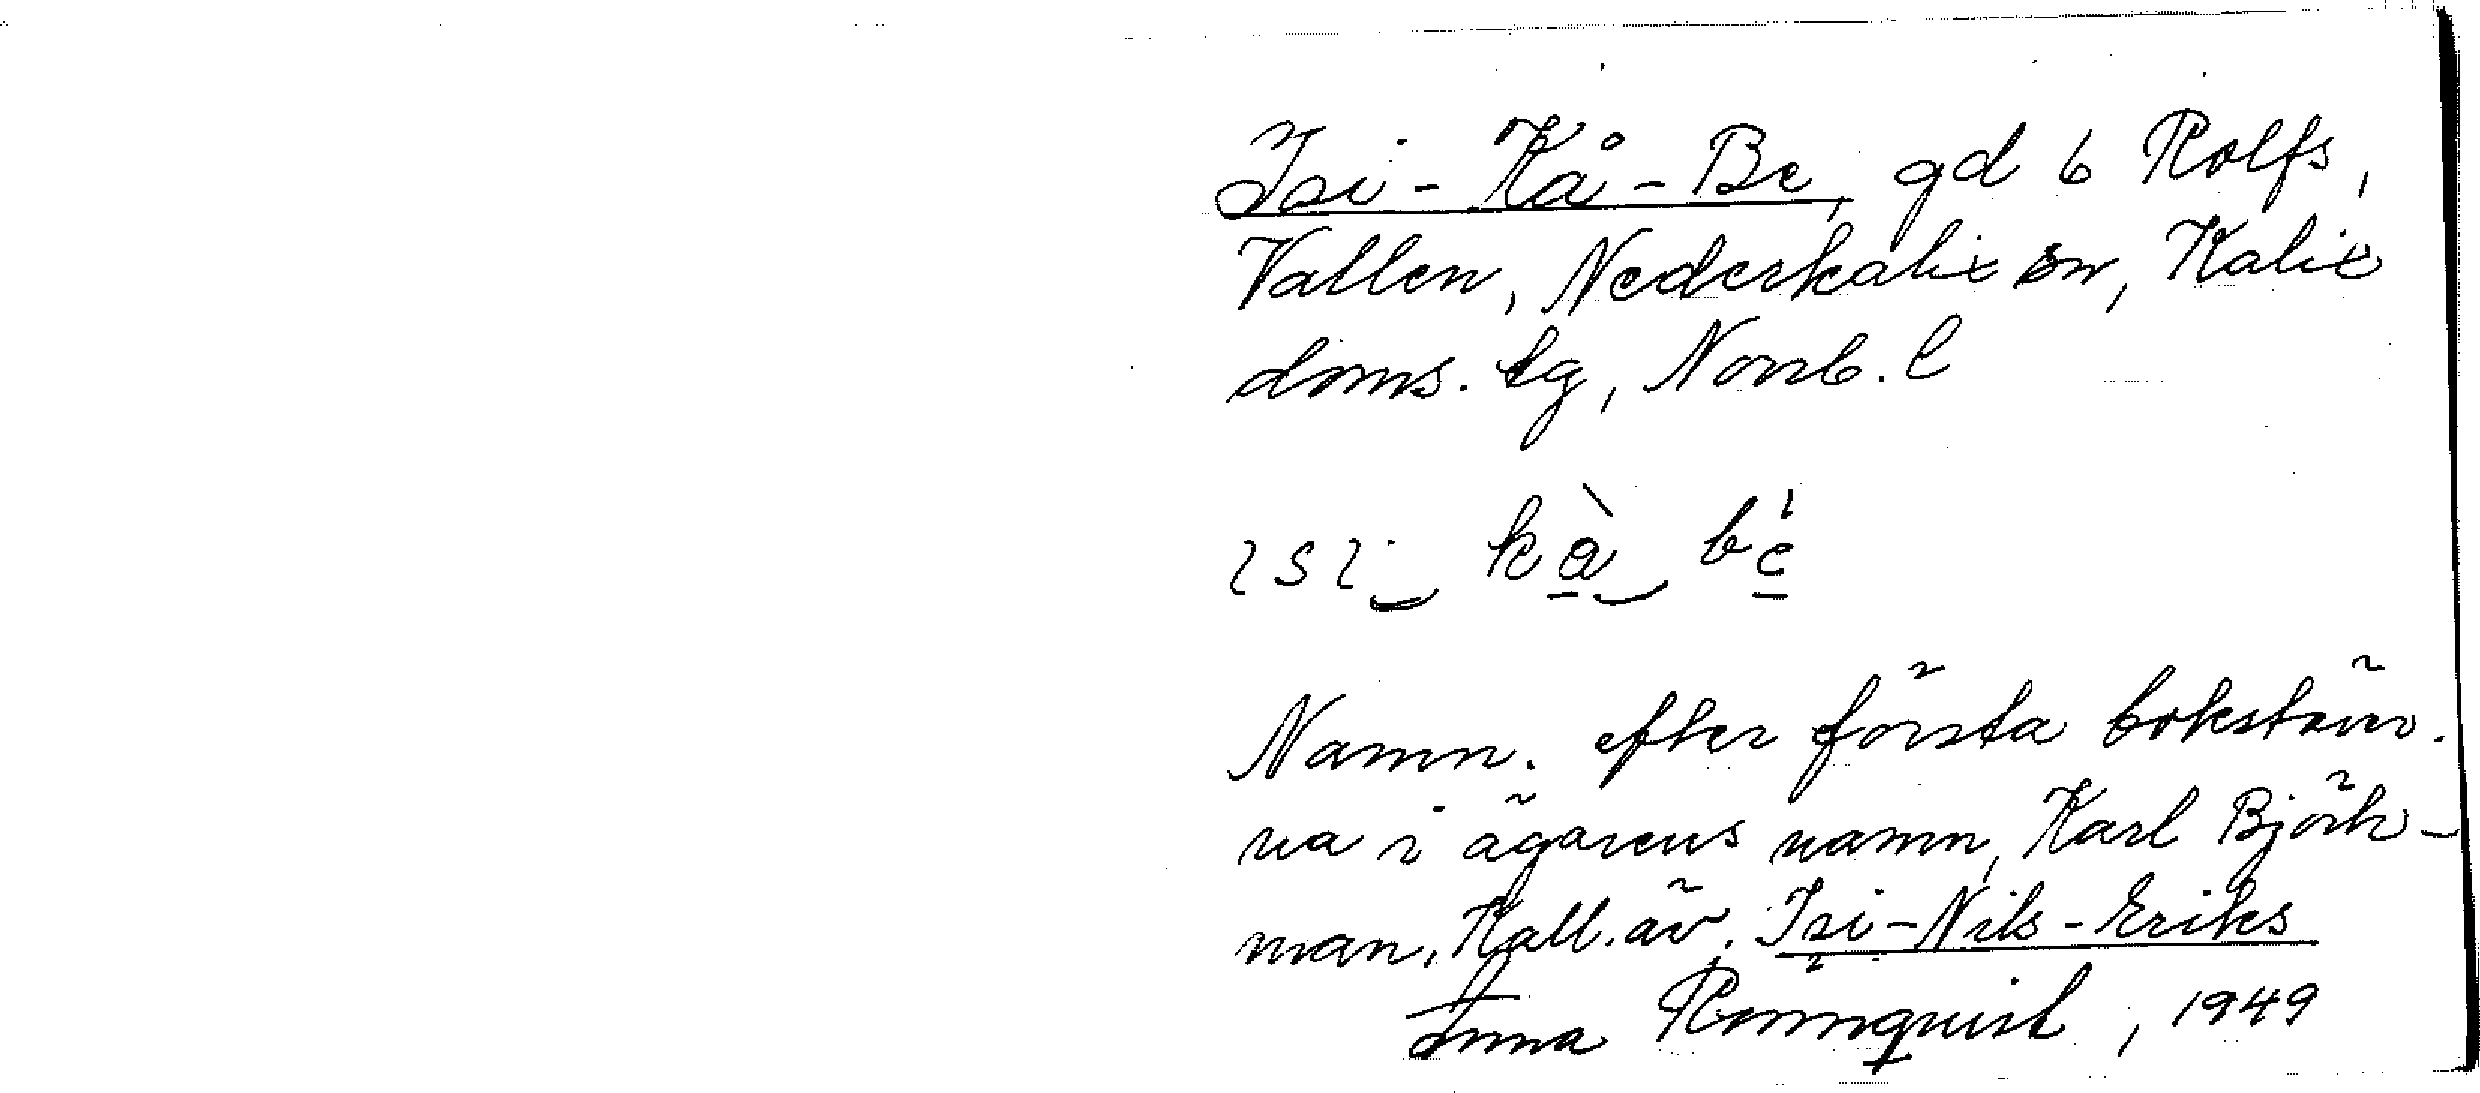 Isi-Kå-Be, gd 6 Rolfs,
Vallen, Nederkalix sn, Kalix
doms. tg, Norrb. l
ısı‿ kå̀‿ bé
Namn. efter första bokstäver.
na i ägarens namn, Karl Björk-
man. Kall. äv. Isi-Nils-Eriks
Anna Rönnquist, 1949